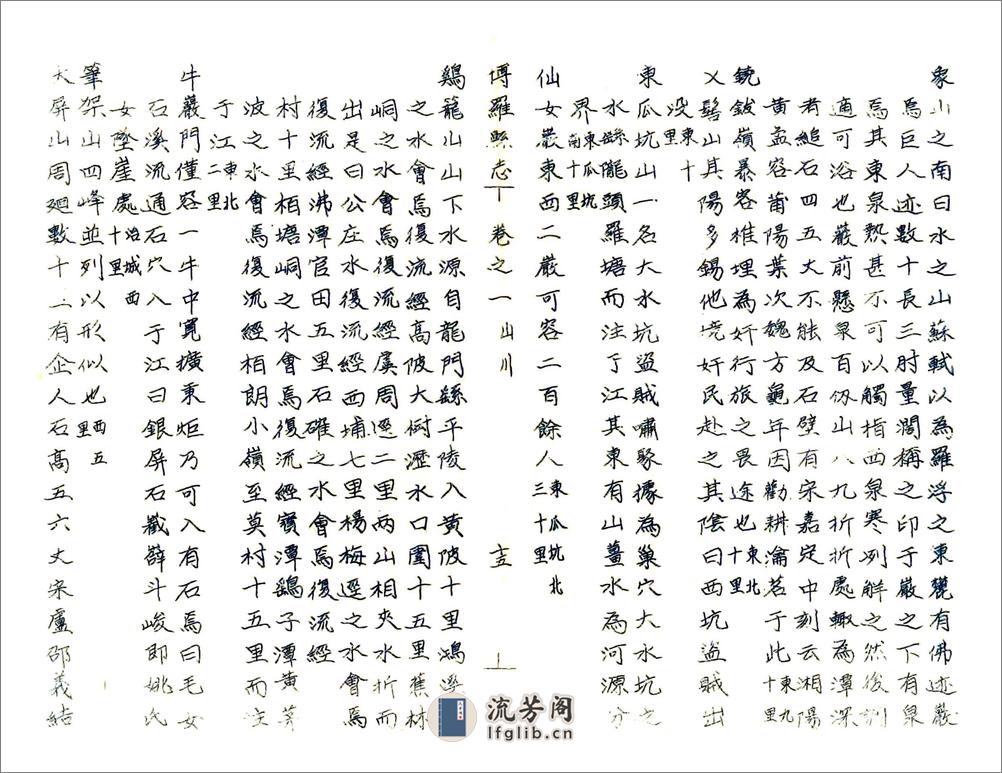 象山之南曰水之山蘇軾以為羅浮之東麓有佛迹巖
焉巨人迹數十長三肘量濶稱之印于巖之下有泉
焉其東泉熱甚不可以觸指西泉寒冽解之然後
適可浴也巖前懸泉百仞山八九折折處輙為潭深
者縋石四五丈不能及石壁有宋嘉定中刻云湘陽
黄孟容莆陽葉次魏方龜年因勸耕瀹茗于此東九十里
鐃鈸嶺暴客椎埋為奸行旅之畏途也東北十里
丫髻山其陽多錫他境奸民赴之其陰曰西坑盜賊出
没東十里
東瓜坑山一名大水坑盜賊嘯聚據為巢穴大水坑之
水緜隴頭羅塘而注了江其東有山薑水為河源分
界東瓜坑南十里
仙女巖東西二巖可容二百餘人東瓜坑北三十里
博羅縣志 卷之一 山川 十五
鷄龍山山下水源自龍門縣平陵入黄陂十里鴻
之水會焉復流經高陂大樹瀝水口圍十五里蕉林
峒之水會焉復流經虞周逕二里兩山相夾水折而
出是曰公庄水復流經西埔七里楊梅逕之水會焉
復流經沸潭官田五里石確之水會焉復流經
村十里柏塘峒之水會焉復流經寶潭鷄子潭黄茅
波之水會焉復流經柏朗小嶺至莫村十五里而注
于江東北二里
牛巖門僅容一牛中寛擴秉炬乃可入有石焉曰毛女
石溪流通石穴入于江曰銀屏石巀嶭斗峻即姚氏
女墜崖處治城西十里
筆架山四峰並列以形似也西五里
大屏山周廻數十二有企人石高五六丈宋盧邵義結
流芳阁
lfglib.cn